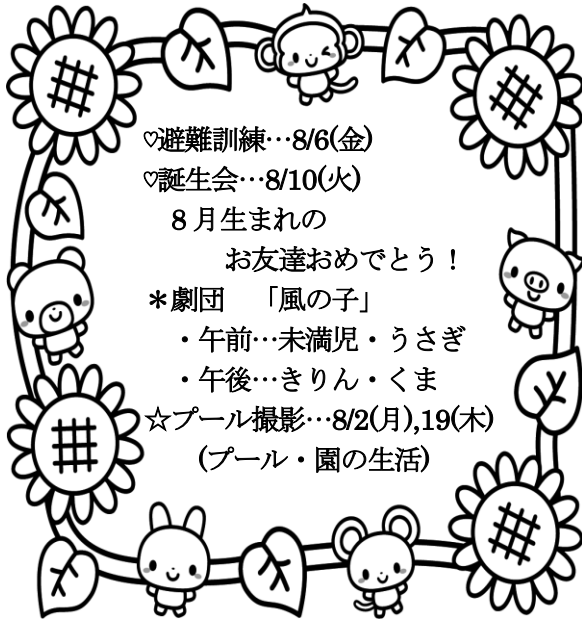 ♡避難訓練…8/6(金)
♡誕生会…8/10(火)
8月生まれの
お友達おめでとう！
＊劇団　「風の子」
・午前…未満児・うさぎ
・午後…きりん・くま
☆プール撮影…8/2(月),19(木)
(プール・園の生活)